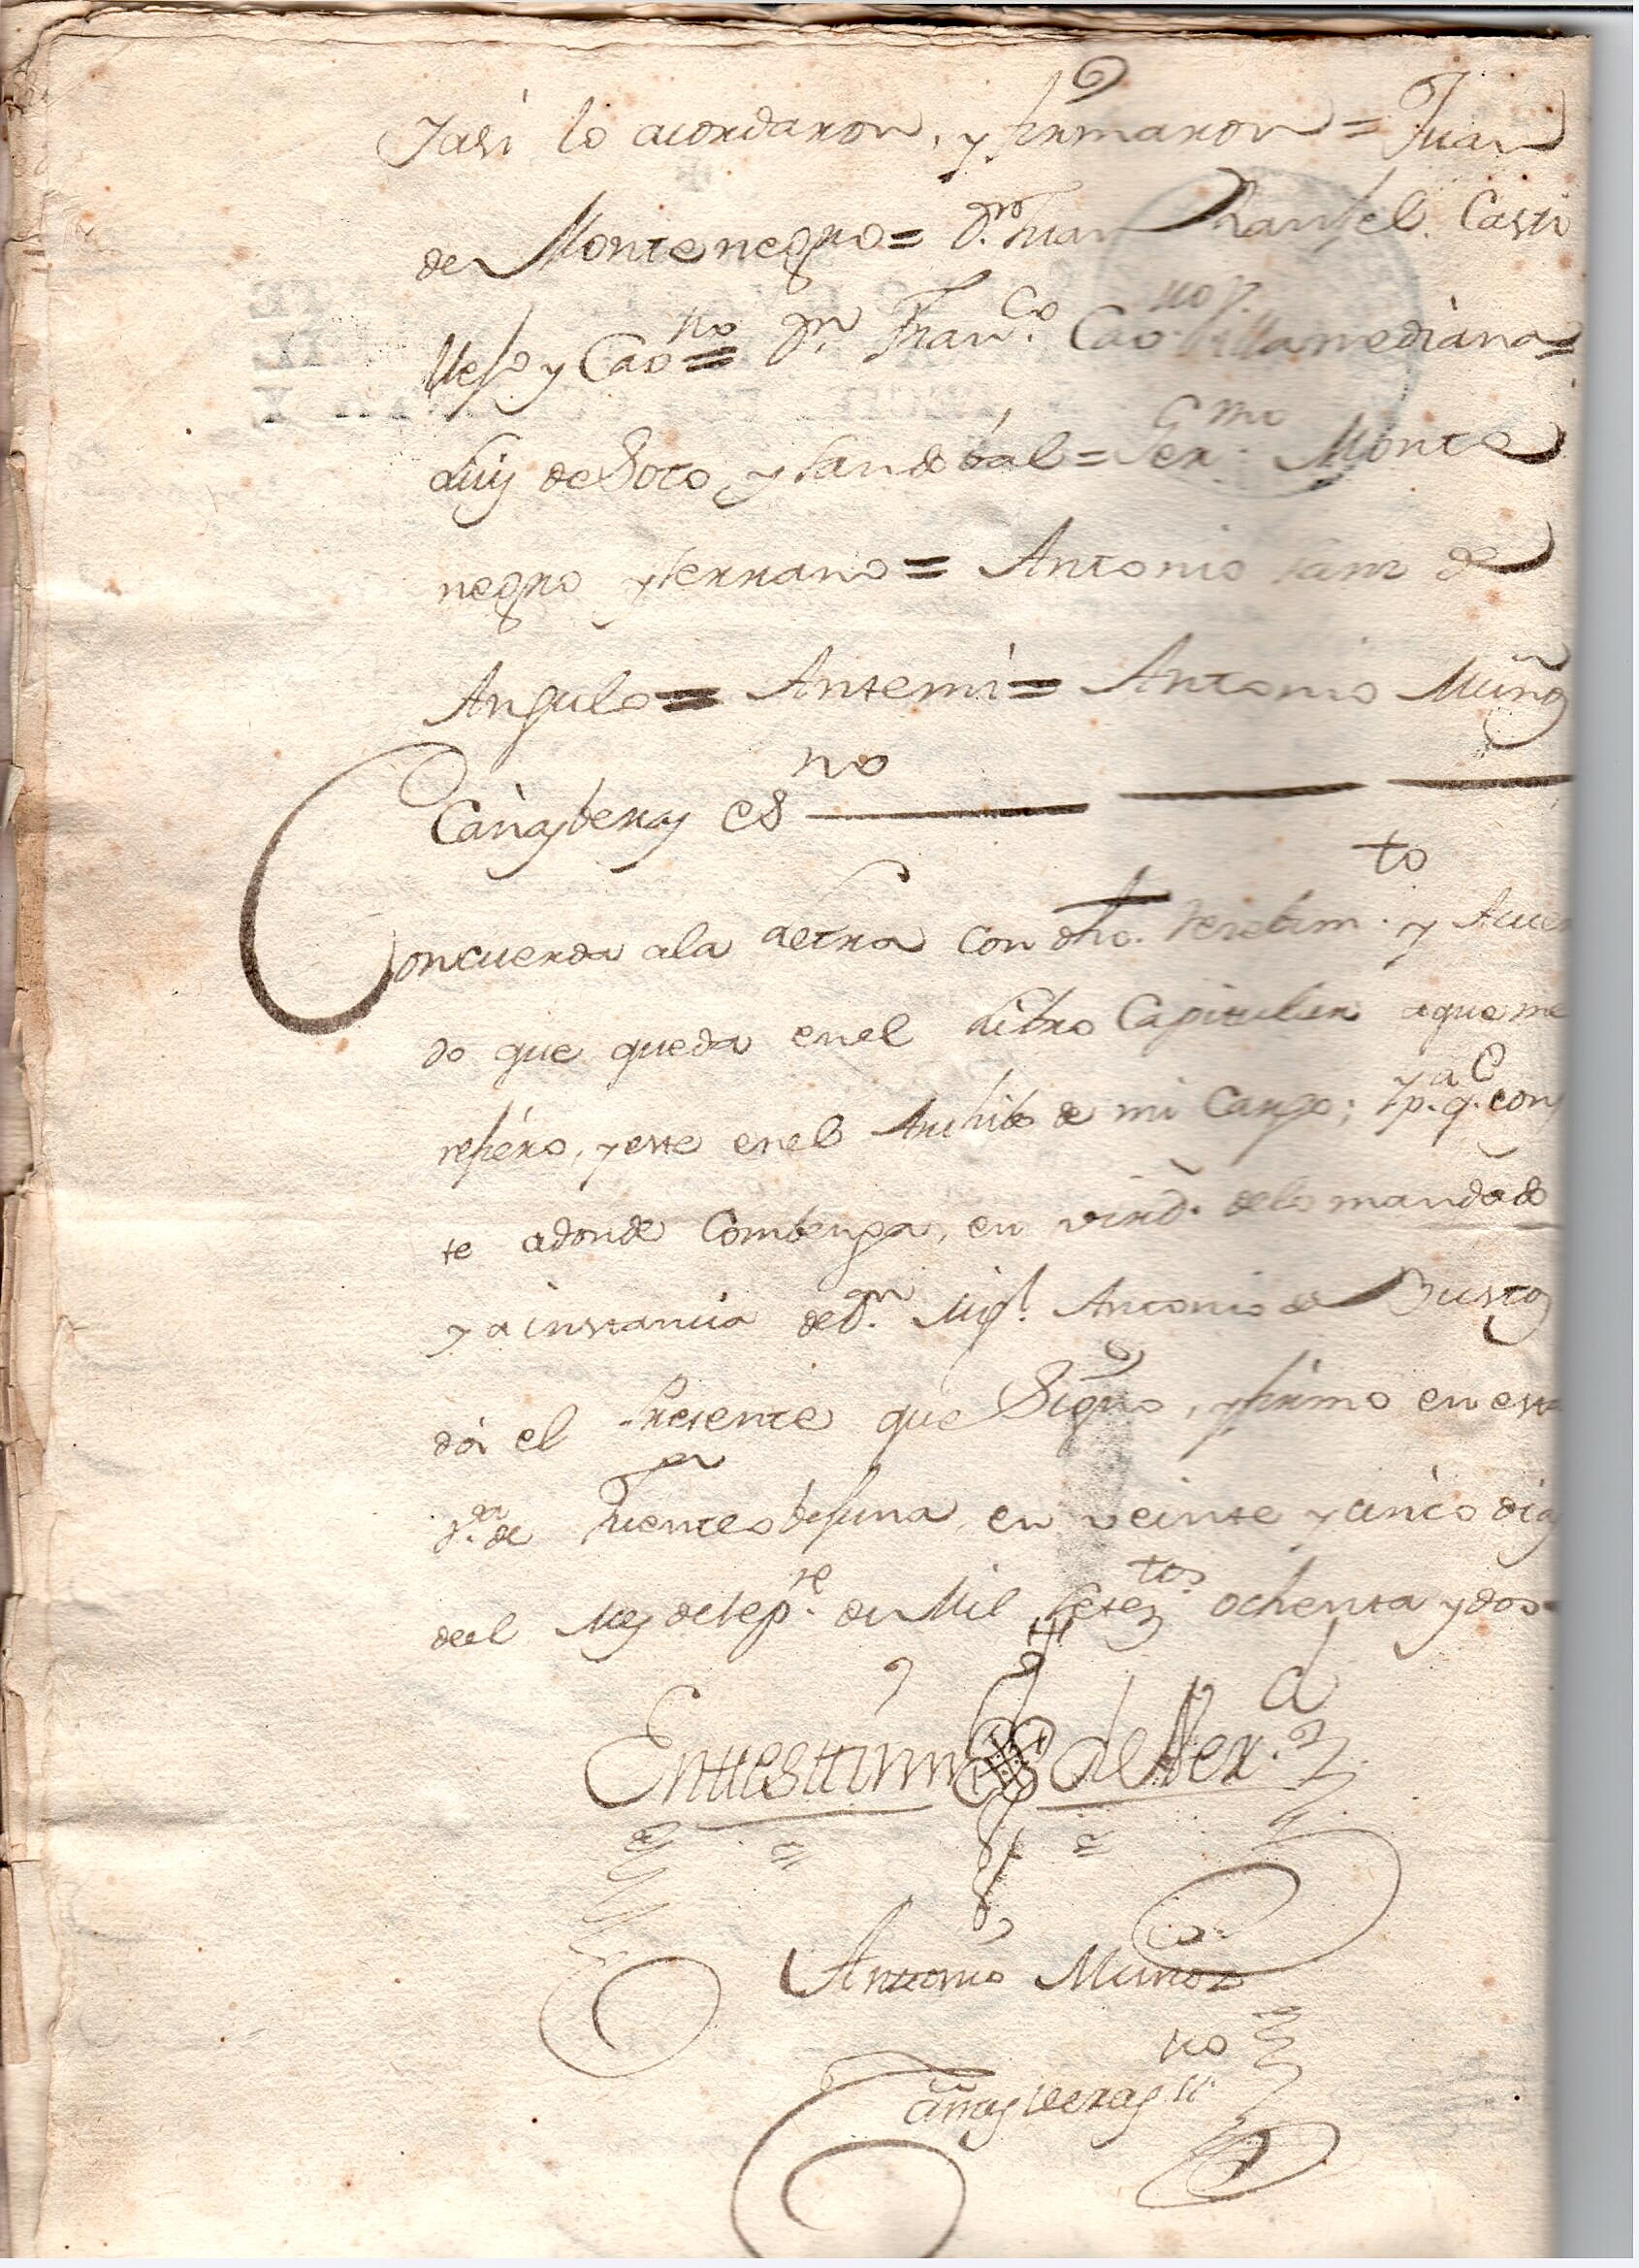 Yasi lo acordaron, y firmaron = Juan
de Montenegro = Dn. Juan Ranxel Casti
llejo y Cano = Dn. Franco. Cano Villamediana =
Luis de Soto, y Sandobal = Germo. Monte
negro y Serrano = Antonio Sanz de
Angulo = Antemi = Antonio Muñoz
Cañasveras esno
Concuerda ala Letra con dho. Resebimto. y Acuer
do que queda enel Libro Capitular aque me
refiero, y este enel Archibo de mi Cargo; Y pa. qe. cons
te adonde Combenga, en virtd. delo mandado
y a instancia de Dn. Migl. Antonio de Bustos
doi el Presente que Signo, y firmo en esta
va. de Fuenteobejuna en veinte y cinco dias
deel Mes de Sepre. de Mil Seteztos. ochenta y dos =
Entestimo de Verd.
Antonio Muñoz
Cañasveras